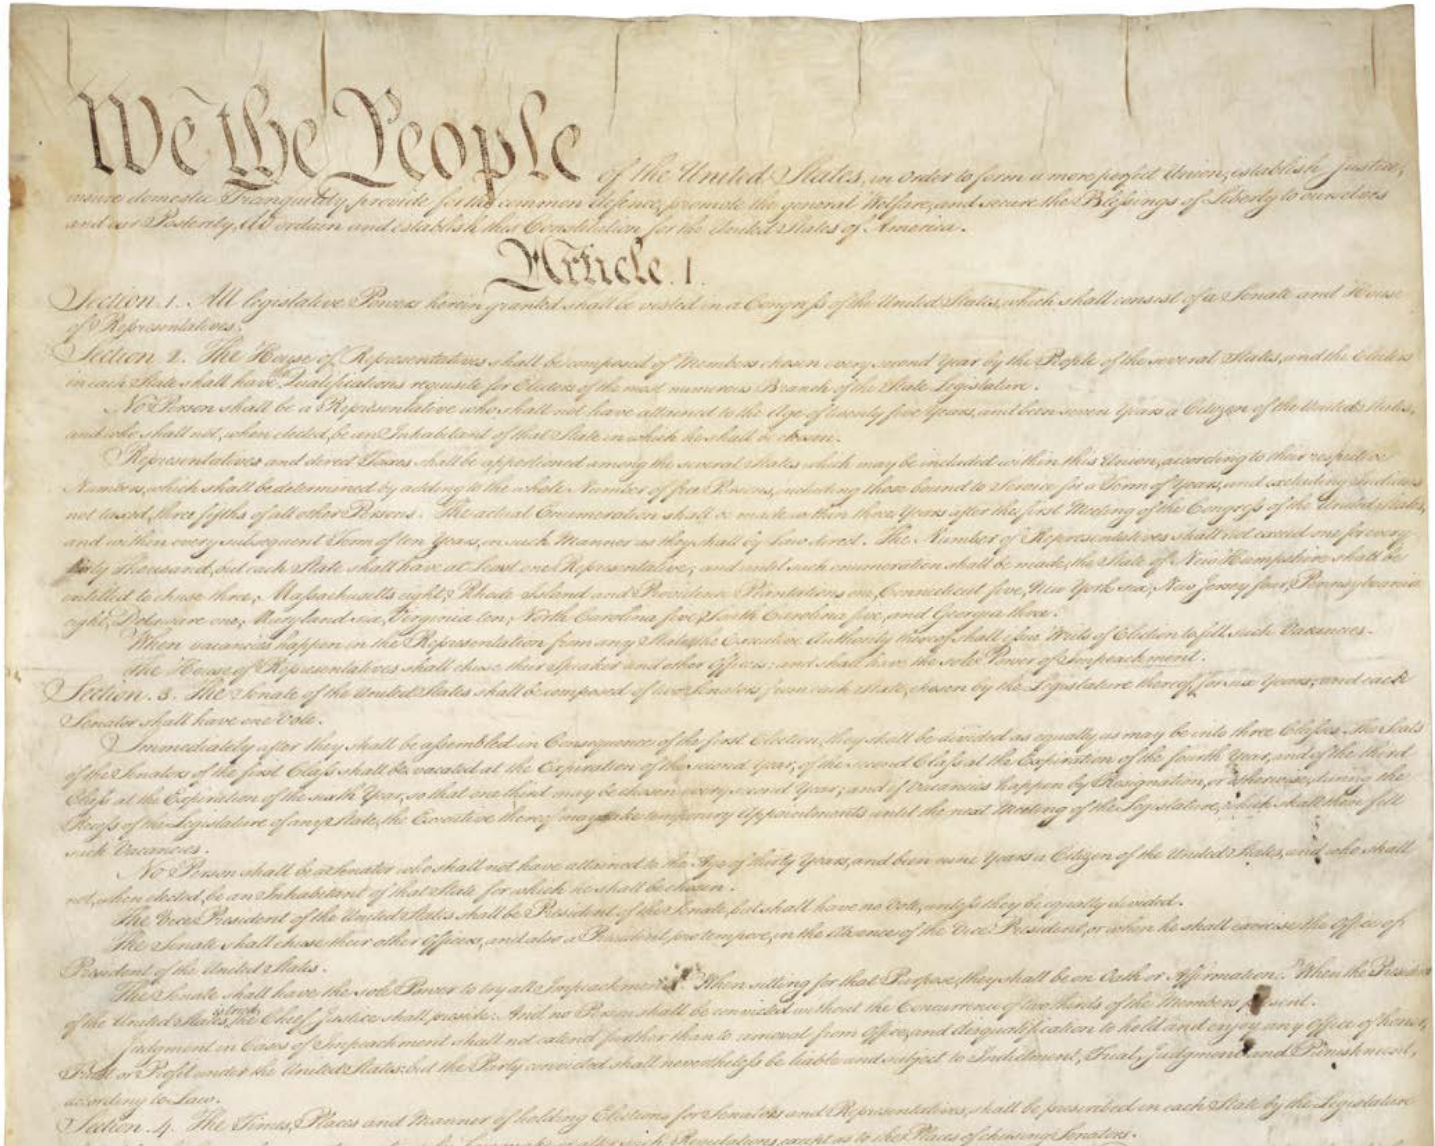 We the People of the United States, in Order to form a more perfect Union, establish Justice,
insure domestic Tranquility, provide for the common defence, promote the general Welfare, and secure the Blessings of Liberty to ourselves
and our Posterity, do ordain and establish this Constitution for the United States of America.
Article. I.
Section. 1. All legislative Powers herein granted shall be vested in a Congress of the United States, which shall consist of a Senate and House
of Representatives.
Section. 2. The House of Representatives shall be composed of Members chosen every second Year by the People of the several States, and the Electors
in each State shall have the Qualifications requisite for Electors of the most numerous Branch of the State Legislature.
No Person shall be a Representative who shall not have attained to the Age of twenty five Years, and been seven Years a Citizen of the United States,
and who shall not, when elected, be an Inhabitant of that State in which he shall be chosen.
Representatives and direct Taxes shall be apportioned among the several States which may be included within this Union, according to their respective
Numbers, which shall be determined by adding to the whole Number of free Persons, including those bound to Service for a Term of Years, and excluding Indians
not taxed, three fifths of all other Persons. The actual Enumeration shall be made within three Years after the first Meeting of the Congress of the United States,
and within every subsequent Term of ten Years, in such Manner as they shall by Law direct. The Number of Representatives shall not exceed one for every
thirty Thousand, but each State shall have at Least one Representative; and until such enumeration shall be made, the State of New Hampshire shall be
entitled to chuse three, Massachusetts eight, Rhode Island and Providence Plantations one, Connecticut five, New York six, New Jersey four, Pennsylvania
eight, Delaware one, Maryland six, Virginia ten, North Carolina five, South Carolina five, and Georgia three.
When vacancies happen in the Representation from any State, the Executive Authority thereof shall issue Writs of Election to fill such Vacancies.
The House of Representatives shall chuse their Speaker and other Officers; and shall have the sole Power of Impeachment.
Section. 3. The Senate of the United States shall be composed of two Senators from each State, chosen by the Legislature thereof, for six Years; and each
Senator shall have one Vote.
Immediately after they shall be assembled in Consequence of the first Election, they shall be divided as equally as may be into three Classes. The Seats
of the Senators of the first Class shall be vacated at the Expiration of the second Year, of the second Class at the Expiration of the fourth Year, and of the third
Class at the Expiration of the sixth Year, so that one third may be chosen every second Year; and if Vacancies happen by Resignation, or otherwise, during the
Recess of the Legislature of any State, the Executive thereof may make temporary Appointments until the next Meeting of the Legislature, which shall then fill
such Vacancies.
No Person shall be a Senator who shall not have attained to the Age of thirty Years, and been nine Years a Citizen of the United States, and who shall
not, when elected, be an Inhabitant of that State for which he shall be chosen.
The Vice President of the United States shall be President of the Senate, but shall have no Vote, unless they be equally divided.
The Senate shall chuse their other Officers, and also a President pro tempore, in the Absence of the Vice President, or when he shall exercise the Office of
President of the United States.
The Senate shall have the sole Power to try all Impeachments. When sitting for that Purpose, they shall be on Oath or Affirmation. When the President
of the United States is tried, the Chief Justice shall preside: And no Person shall be convicted without the Concurrence of two thirds of the Members present.
Judgment in Cases of Impeachment shall not extend further than to removal from Office, and disqualification to hold and enjoy any Office of honor,
Trust or Profit under the United States: but the Party convicted shall nevertheless be liable and subject to Indictment, Trial, Judgment and Punishment,
according to Law.
Section. 4. The Times, Places and Manner of holding Elections for Senators and Representatives, shall be prescribed in each State by the Legislature
such Regulations, except as to the Places of chusing Senators.